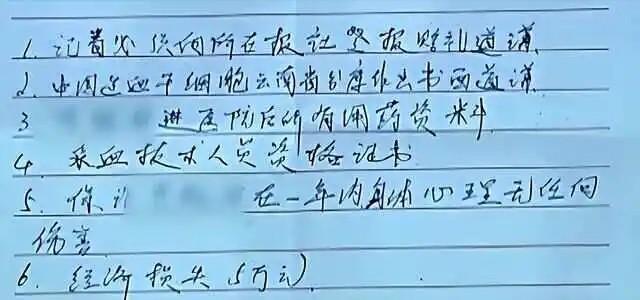 1. 记者必须向所在报社登报赔礼道谦
2. 中国造血干细胞云南省分库作出书面道谦
3 进医院后所有用药资料
4. 采血技术人员资格证书
5. 保证 在一年内身体心理无任何
伤害
6. 经济损失(5万元)